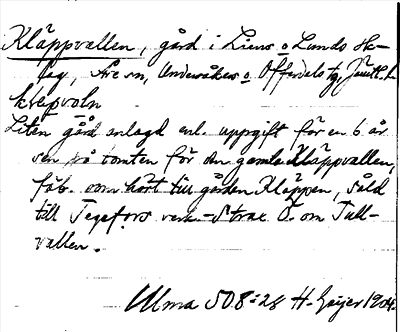 Kläppvallen, gård i Liens o Lunds sk-
lag, Åre sn, Undersåkers o Offerdals tg, Jämtl. l.
klepvaln
Liten gård anlagd enl. uppgift för en 6 år
sen på tomten för den gamla Kläppvallen,
fäb. som hört till gården Kläppen, såld
till Tegefors verk. - Strax Ö. om Tull-
vallen.
Ulma 508:28 H. Geijer 1924.